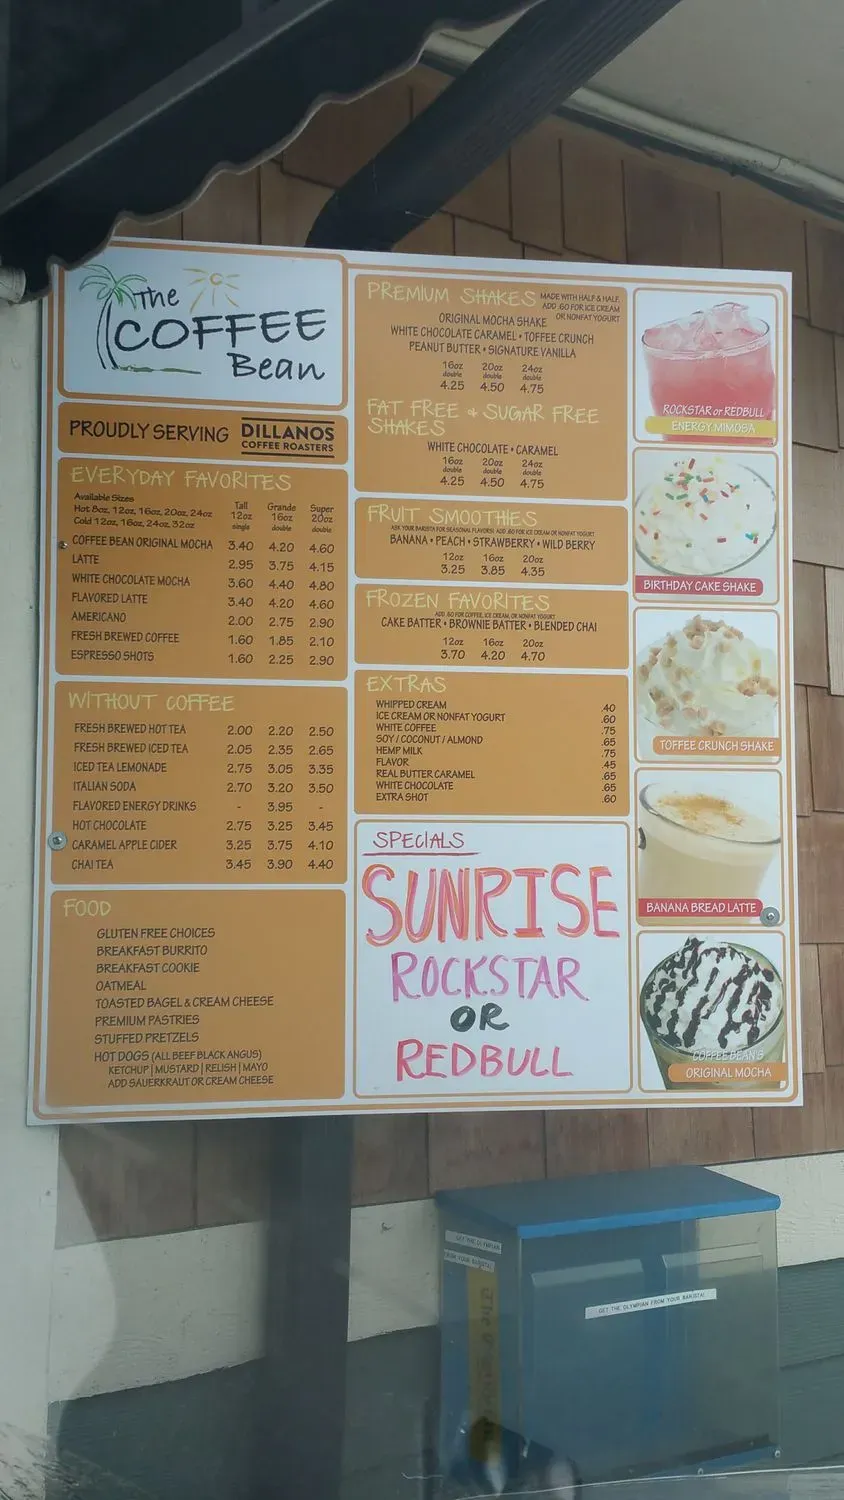 The
COFFEE
Bean
PROUDLY SERVING DILLANOS
COFFEE ROASTERS
EVERYDAY FAVORITES
Available Sizes
Hot 8oz, 12oz, 16oz, 20oz, 24oz
Cold 12oz, 16oz, 24oz, 32oz
Tall Grande Super
12oz 16oz 20oz
single double double
COFFEE BEAN ORIGINAL MOCHA 3.40 4.20 4.60
LATTE 2.95 3.75 4.15
WHITE CHOCOLATE MOCHA 3.60 4.40 4.80
FLAVORED LATTE 3.40 4.20 4.60
AMERICANO 2.00 2.75 2.90
FRESH BREWED COFFEE 1.60 1.85 2.10
ESPRESSO SHOTS 1.60 2.25 2.90
WITHOUT COFFEE
FRESH BREWED HOT TEA 2.00 2.20 2.50
FRESH BREWED ICED TEA 2.05 2.35 2.65
ICED TEA LEMONADE 2.75 3.05 3.35
ITALIAN SODA 2.70 3.20 3.50
FLAVORED ENERGY DRINKS - 3.95 -
HOT CHOCOLATE 2.75 3.25 3.45
CARAMEL APPLE CIDER 3.25 3.75 4.10
CHAI TEA 3.45 3.90 4.40
FOOD
GLUTEN FREE CHOICES
BREAKFAST BURRITO
BREAKFAST COOKIE
OATMEAL
TOASTED BAGEL & CREAM CHEESE
PREMIUM PASTRIES
STUFFED PRETZELS
HOT DOGS (ALL BEEF BLACK ANGUS)
KETCHUP | MUSTARD | RELISH | MAYO
ADD SAUERKRAUT OR CREAM CHEESE
PREMIUM SHAKES MADE WITH HALF & HALF,
ADD .60 FOR ICE CREAM
OR NONFAT YOGURT
ORIGINAL MOCHA SHAKE
WHITE CHOCOLATE CARAMEL • TOFFEE CRUNCH
PEANUT BUTTER • SIGNATURE VANILLA
16oz 20oz 24oz
double double double
4.25 4.50 4.75
FAT FREE & SUGAR FREE
SHAKES
WHITE CHOCOLATE • CARAMEL
16oz 20oz 24oz
double double double
4.25 4.50 4.75
FRUIT SMOOTHIES
ASK YOUR BARISTA FOR SEASONAL FLAVORS! ADD .60 FOR ICE CREAM OR NONFAT YOGURT
BANANA • PEACH • STRAWBERRY • WILD BERRY
12oz 16oz 20oz
3.25 3.85 4.35
FROZEN FAVORITES
ADD .60 FOR COFFEE, ICE CREAM, OR NONFAT YOGURT
CAKE BATTER • BROWNIE BATTER • BLENDED CHAI
12oz 16oz 20oz
3.70 4.20 4.70
EXTRAS
WHIPPED CREAM .40
ICE CREAM OR NONFAT YOGURT .60
WHITE COFFEE .75
SOY / COCONUT / ALMOND .65
HEMP MILK .75
FLAVOR .45
REAL BUTTER CARAMEL .65
WHITE CHOCOLATE .65
EXTRA SHOT .60
SPECIALS
SUNRISE
ROCKSTAR
OR
REDBULL
ROCKSTAR or REDBULL
ENERGY MIMOSA
BIRTHDAY CAKE SHAKE
TOFFEE CRUNCH SHAKE
BANANA BREAD LATTE
COFFEE BEAN'S
ORIGINAL MOCHA
GET THE OLYMPIAN
FROM YOUR BARISTA!
GET THE OLYMPIAN FROM YOUR BARISTA!